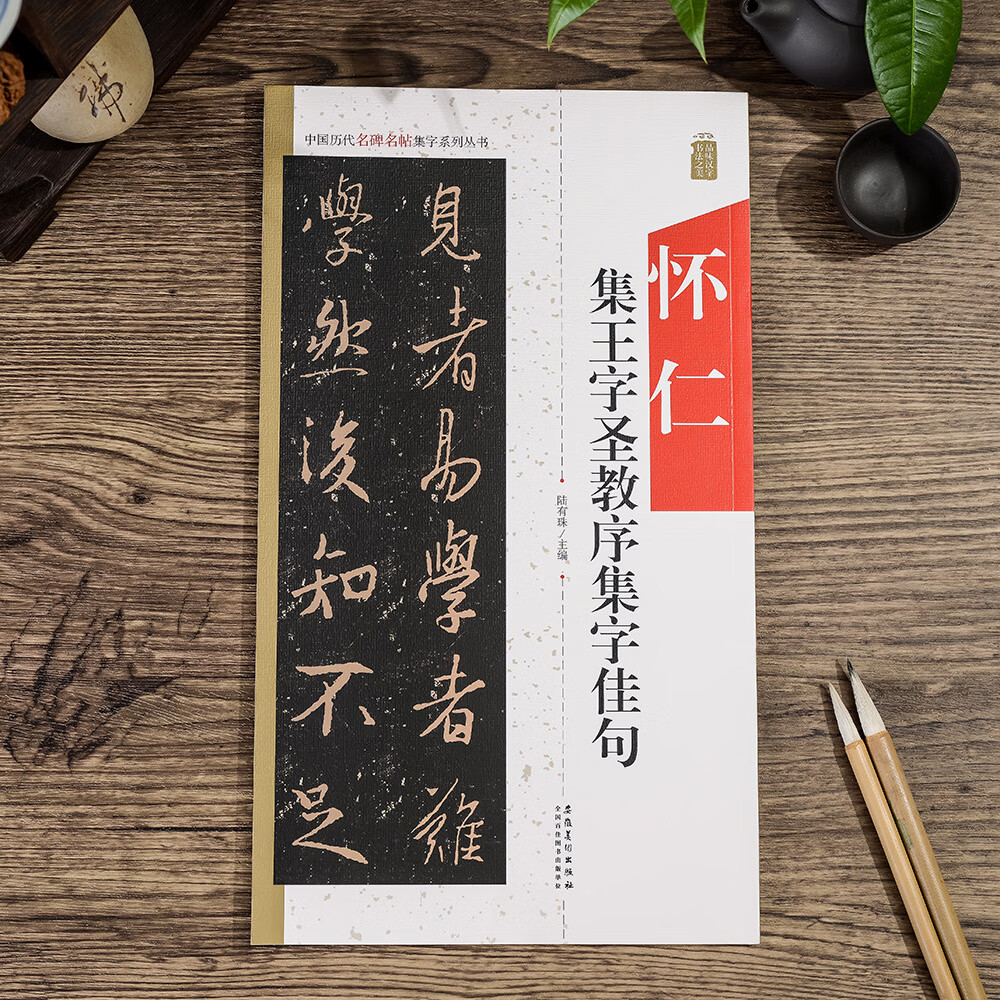 中国历代名碑名帖集字系列丛书
品味汉字
书法之美
怀仁
集王字圣教序集字佳句
陆有珠/主编
安徽美术出版社
全国百佳图书出版单位
見者易學者難
學然後知不足